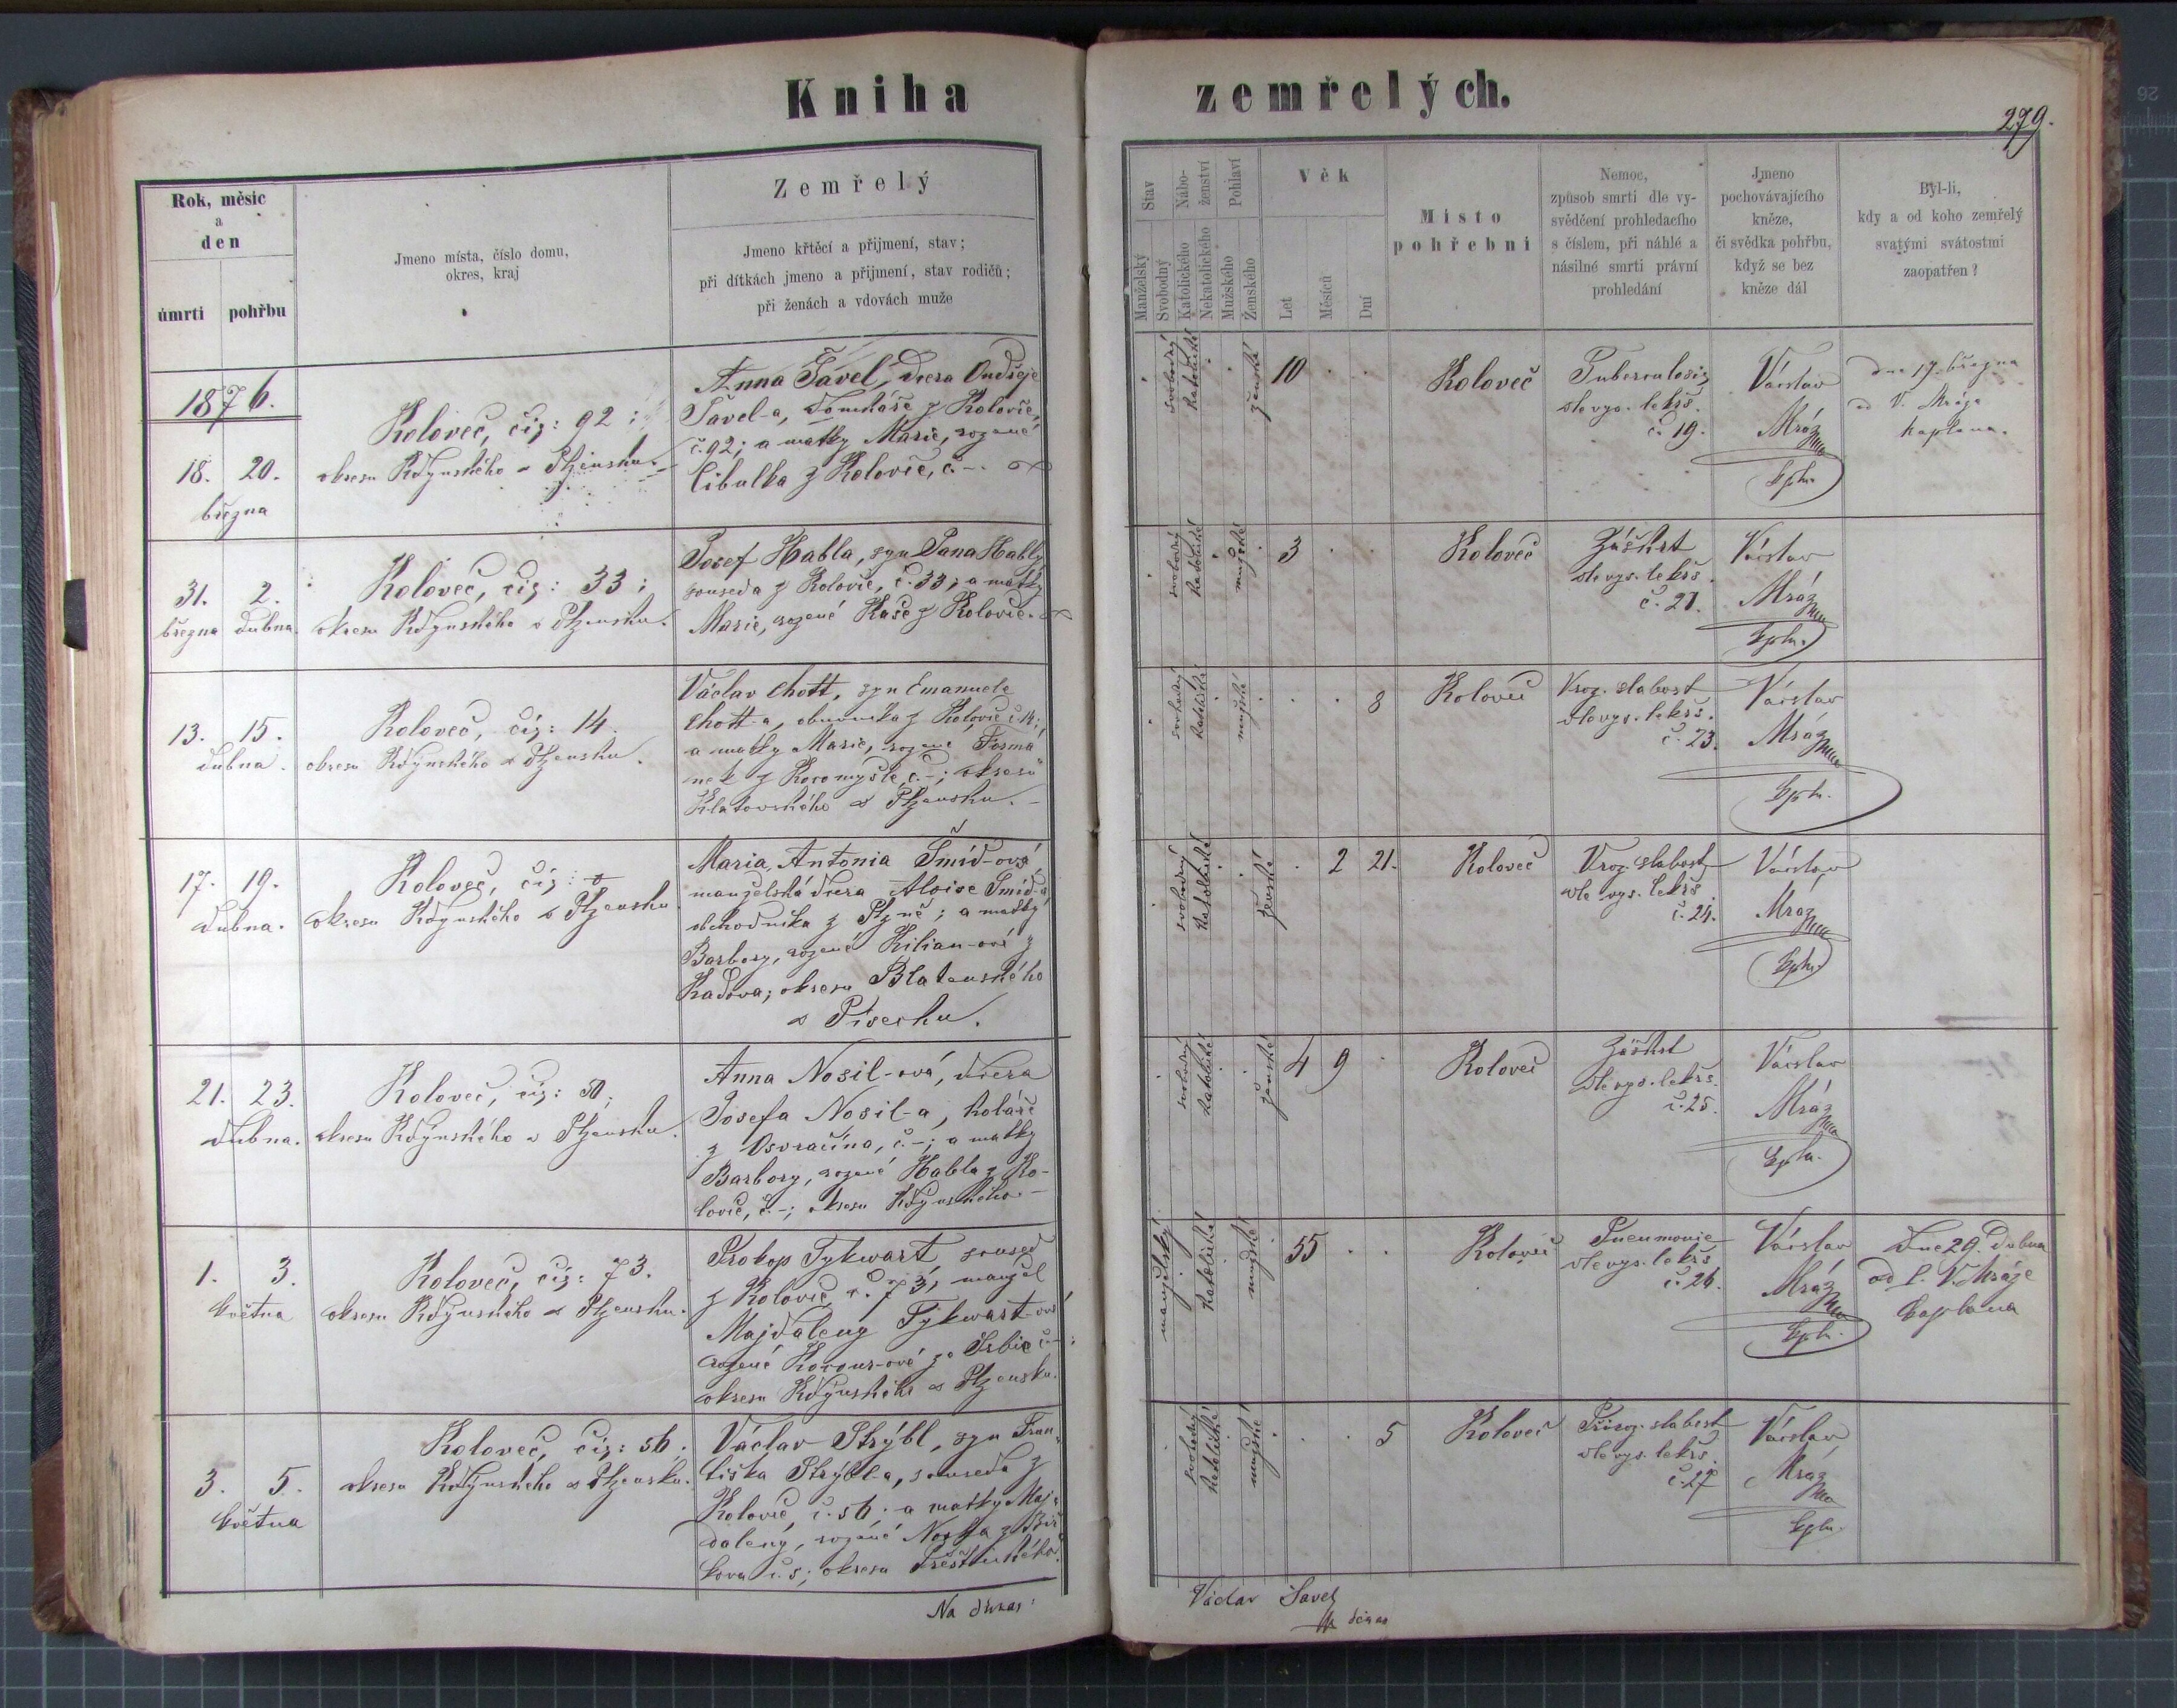 Kniha zemřelých.
279.
Rok, měsíc
a
den
úmrtí pohřbu
Jmeno místa, číslo domu,
okres, kraj
Zemřelý
Jmeno křtěcí a přijmení, stav;
při dítkách jmeno a přijmení, stav rodičů;
při ženách a vdovách muže
Stav
Manželský
Svobodný
Nábo-
ženství
Katolického
Nekatolického
Pohlaví
Mužského
Ženského
Věk
Let
Měsíců
Dní
Místo
pohřební
Nemoc,
způsob smrti dle vy-
svědčení prohledacího
s číslem, při náhlé a
násilné smrti právní
prohledání
Jmeno
pochovávajícího
kněze,
či svědka pohřbu,
když se bez
kněze dál
Byl-li,
kdy a od koho zemřelý
svatými svátostmi
zaopatřen?
1876.
18. 20.
března
Koloveč, čís: 92;
okresu Kdýnského v Plzensku.
Anna Šavel, dcera Ondřeje
Šavel-a, domkáře z Kolovče,
č. 92; a matky Marie, rozené
Cibulka z Kolovče, č. -.
svobodný
katolické
ženské
10
Koloveč
Tuberculosis
dle vys. lekš.
č. 19.
Václav
Mráz
kpln.
dne 17. března
od V. Mráze
kaplana.
31. 2.
března dubna.
Koloveč, čís: 33;
okresu Kdýnského v Plzensku.
Josef Habla, syn Jana Hably,
souseda z Kolovče, č. 33; a matky
Marie, rozené Kaše z Kolovče.
svobodný
katolické
mužské
3
Koloveč
Záškrt
dle vys. lekš.
č. 21.
Václav
Mráz
kpln.
13. 15.
dubna.
Koloveč, čís: 14.
okresu Kdýnského v Plzensku.
Václav Chott, syn Emanuela
Chott-a, obuvníka z Kolovče č. 14;
a matky Marie, rozené Forma
nek z Koromysle, č. -; okresu
Klatovského v Plzensku. -
svobodný
katolické
mužské
8
Koloveč
Vroz. slabost
dle vys. lekš.
č. 23.
Václav
Mráz
kpln.
17. 19.
dubna.
Koloveč, čís:
okresu Kdýnského v Plzensku
Maria Antonia Šmíd-ová,
manželská dcera Aloise Šmíd-a
obchodníka z Plzně; a matky
Barbory, rozené Kilian-ové z
Kadova; okresu Blatenského
v Písecku.
svobodný
katolické
ženské
2 21.
Koloveč
Vroz. slabost
dle vys. lekš.
č. 24.
Václav
Mráz
kpln.
21. 23.
dubna.
Koloveč, čís: 50;
okresu Kdýnského v Plzensku.
Anna Nosil-ová, dcera
Josefa Nosil-a, koláře
z Osvračína, č. -; a matky
Barbory, rozené Habla z Ko-
lovče, č. -; okresu Kdýnského. -
svobodný
katolické
ženské
4 9
Koloveč
Záškrt
dle vys. lekš.
č. 25.
Václav
Mráz
kpln.
1. 3.
května
Koloveč, čís: 73.
okresu Kdýnského v Plzensku.
Prokop Tykwart, soused
z Kolovče, č. 73, manžel
Majdaleny Tykwart-ové
rozené ze Srbic č. -;
okresu Kdýnského v Plzensku.
manželský
katolické
mužské
55
Koloveč
Pneumonie
dle vys. lekš.
č. 26.
Václav
Mráz
kpln.
Dne 29. dubna
od V. Mráze
kaplana
3. 5.
května
Koloveč, čís: 56.
okresu Kdýnského v Plzensku.
Václav Strýbl, syn Fran-
tiška Strýbl-a, souseda z
Kolovče, č. 56; a matky Maj-
daleny, rozené z
kova č. 5; okresu Přeštického.
svobodný
katolické
mužské
5
Koloveč
Přiroz. slabost
dle vys. lekš.
č. 27
Václav
Mráz
kpln.
Na důkaz:
Václav Šavel